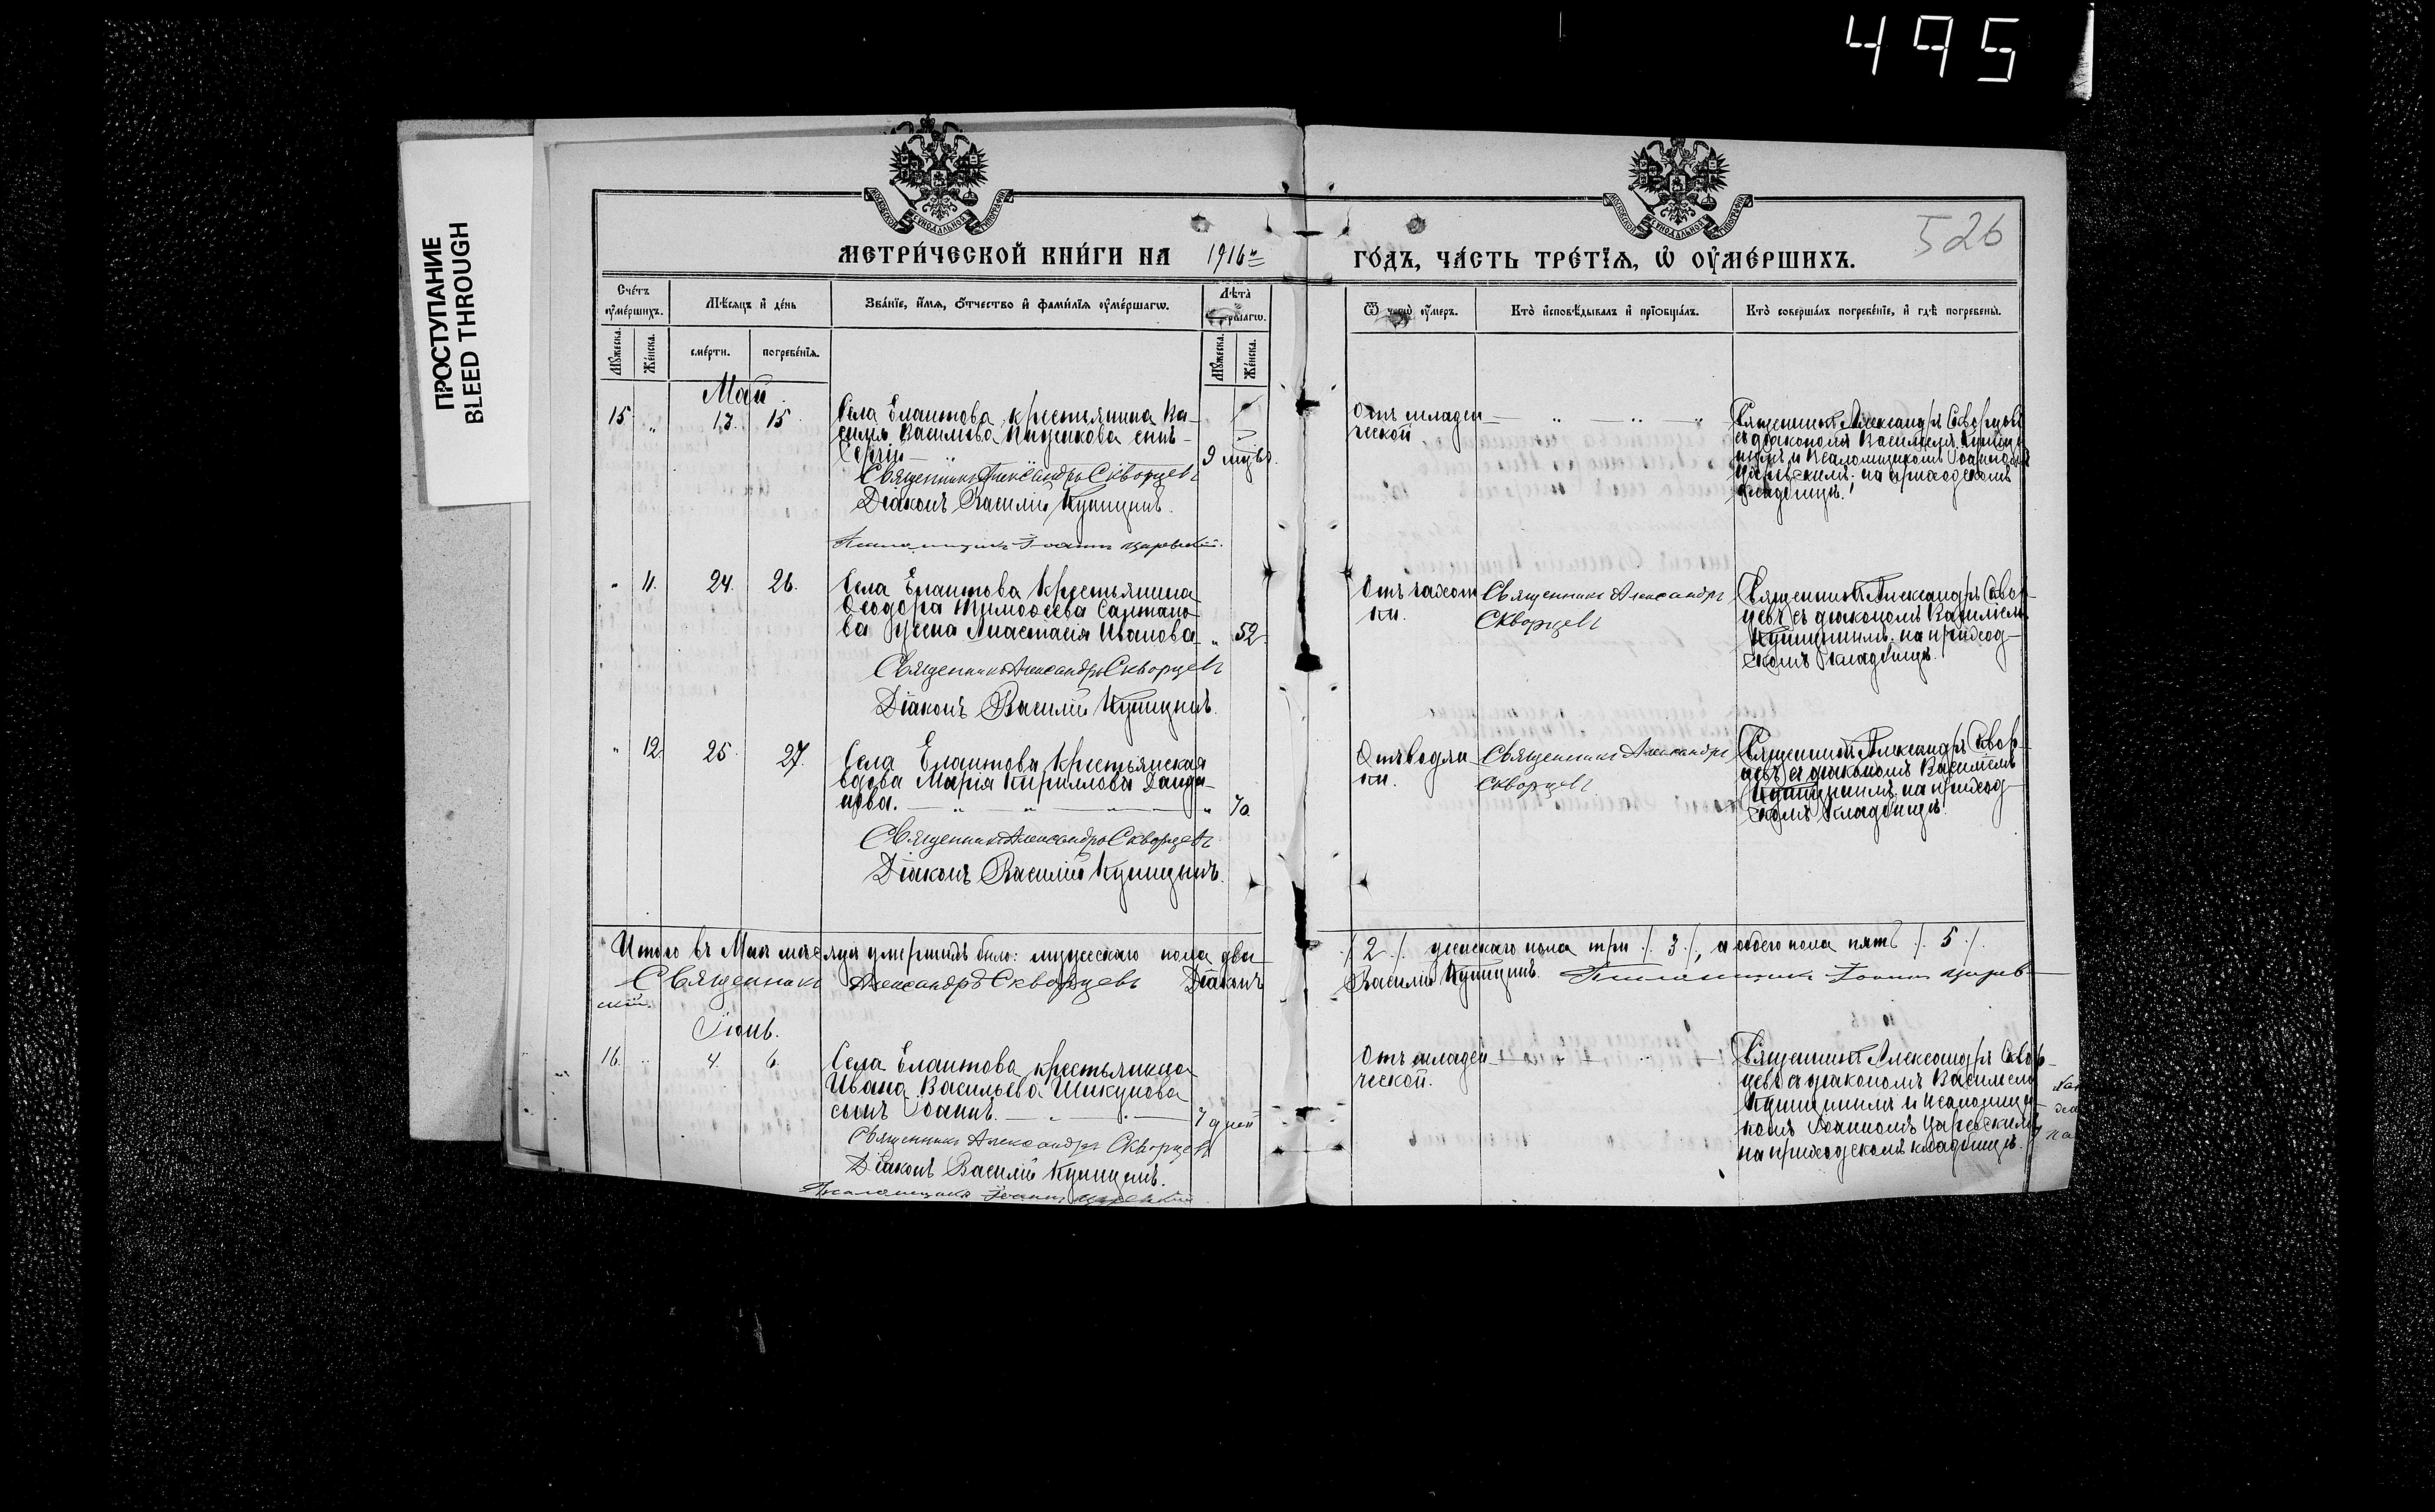 495
ПРОСТУПАНИЕ
BLEED THROUGH
526
МЕТРИ́ЧЕСКОЙ КНИ́ГИ НА 1916й ГО́ДЪ, ЧА́СТЬ ТРЕ́ТЇѦ, Ѡ҆ ОУ҆МЕ́РШИХЪ.
Сче́тъ оу҆ме́ршихъ.
Мѣ́сяцъ и҆ де́нь
Зва́нїе, и҆́мя, ѻ҆́тчество и҆ фами́лїя оу҆ме́ршагѡ.
Лѣта̀
Ѿ чегѡ̀ оу҆́меръ.
Кто̀ и҆сповѣ́дывалъ и҆ прїѻбща́лъ.
Кто̀ соверша́лъ погребе́нїе, и҆ гдѣ̀ погребены̀.
Мꙋ́жеска.
Же́нска.
сме́рти.
погребе́нїя.
Мꙋ́жеска.
Же́нска.
Май
15 " 13. 15
Села Елатова крестьянина Ва-
силія Васильева сынъ
Сергій 9 мцвъ.
Священникъ Александръ Скворцевъ
Діаконъ Василій Купицынъ.
Псаломщикъ Іоаннъ Царевскій.
Отъ младен
ческой
Священникъ Александръ Скворцевъ
съ діакономъ Василіемъ Купицы
нымъ и Псаломщикомъ Іоанномъ
Царевскимъ; на приходскомъ
кладбищѣ.
" 11. 24. 26.
Села Елатова крестьянина
Ѳеодора Тимоѳеева Салтано-
ва жена Анастасія Иванова " 52
Священникъ Александръ Скворцевъ
Діаконъ Василій Купицынъ.
Отъ чахот
ки.
Священникъ Александръ
Скворцевъ
Священникъ Александръ Сквор-
цевъ съ діакономъ Василіемъ
Купицынымъ, на приход-
скомъ кладбищѣ.
" 12. 25. 27.
Села Елатова крестьянская
вдова Марія Кириллова
" 70.
Священникъ Александръ Скворцевъ
Діаконъ Василій Купицынъ.
Отъ водян
ки.
Священникъ Александръ
Скворцевъ
Священникъ Александръ Сквор-
цевъ съ діакономъ Василіемъ
Купицынымъ, на приход-
скомъ кладбищѣ.
Итого въ Маѣ мѣсяцѣ умершихъ было: мужескаго пола два /. 2 ./. женскаго пола три /. 3 ./, а обоего пола пять /. 5 ./.
Священникъ Александръ Скворцевъ Діаконъ Василій Купицынъ. Псаломщикъ Іоаннъ Царев-
скій.
Іюнь.
16. " 4. 6.
Села Елатова крестьянина
Ивана Васильева Шикунова
сынъ Іоаннъ. 7 дней
Священникъ Александръ Скворцевъ
Діаконъ Василій Купицынъ.
Псаломщикъ Іоаннъ Царевскій
Отъ младен
ческой.
Священникъ Александръ Сквор-
цевъ съ діакономъ Василіемъ
Купицынымъ и псаломщи-
комъ Іоанномъ Царевскимъ
на приходскомъ кладбищѣ.